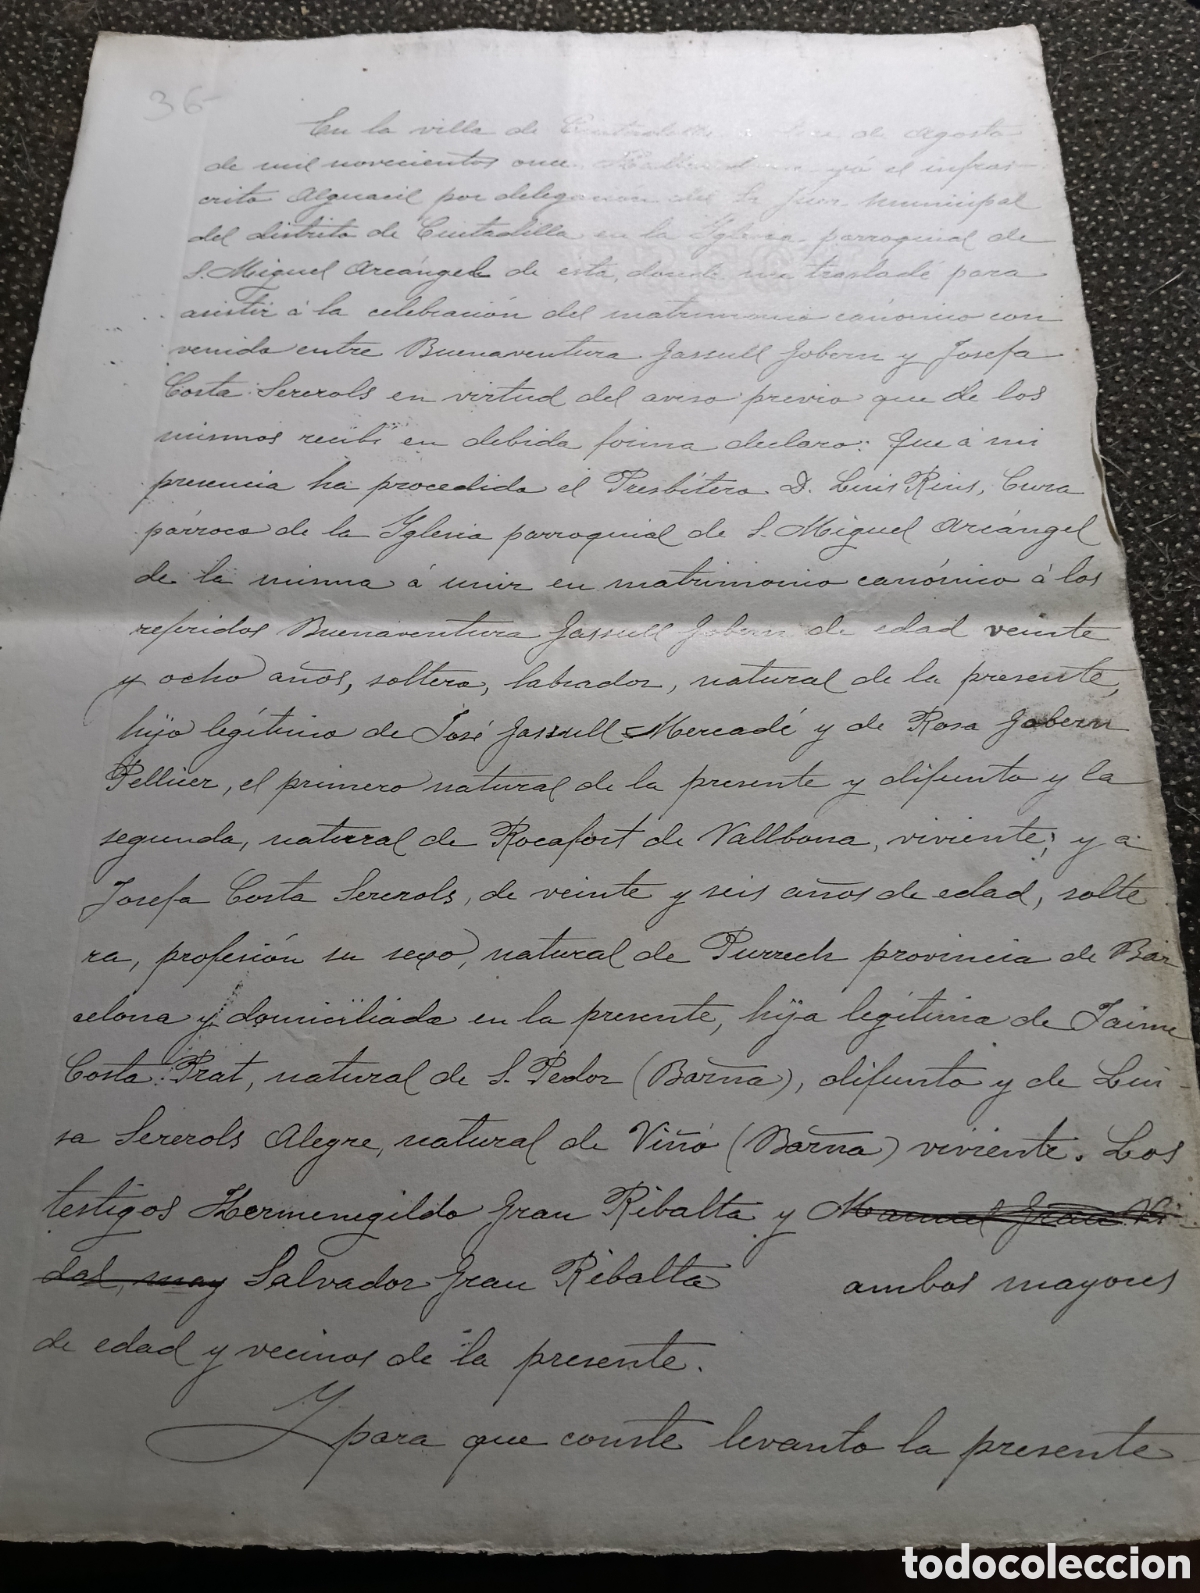 36
En la villa de Ciutadilla a doce de Agosto
de mil novecientos once. Hallandome yó el infras-
crito Alguacil por delegación del Sr. Juez Municipal
del distrito de Ciutadilla en la Iglesia parroquial de
S. Miguel Arcángel de esta, donde me trasladé para
asistir á la celebración del matrimonio canónico con
venido entre Buenaventura Jassull Jobern y Josefa
Costa Sererols en virtud del aviso previo que de los
mismos recibí en debida forma declaro: Que á mi
presencia ha procedido el Presbítero D. Luis Rius, Cura
párroco de la Iglesia parroquial de S. Miguel Arcángel
de la misma á unir en matrimonio canónico á los
referidos Buenaventura Jassull Jobern de edad veinte
y ocho años, soltero, labrador, natural de la presente,
hijo legítimo de José Jassull Mercadé y de Rosa Jobern
Pellicer, el primero natural de la presente y difunto y la
segunda, natural de Rocafort de Vallbona, viviente; y á
Josefa Costa Sererols, de veinte y seis años de edad, solte
ra, profesión su sexo, natural de Purrech provincia de Bar
celona y domiciliada en la presente, hija legítima de Jaime
Costa Prat, natural de S. Pedor (Barna), difunto y de Lui-
sa Sererols Alegre, natural de Viñó (Barna) viviente. Los
testigos Hermenegildo Grau Ribalta y Manuel Grau
may Salvador Grau Ribalta ambos mayores
de edad y vecinos de la presente.
Y para que conste levanto la presente
todocoleccion